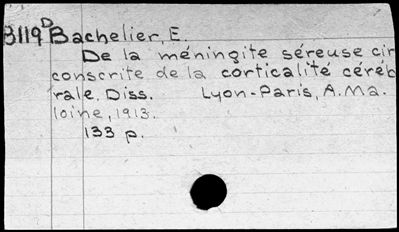 B119ᴰ Bachelier, E.
De la méningite séreuse cir
conscrite de la corticalité céréb
rale. Diss. Lyon-Paris, A. Ma.
loine, 1913.
133 p.